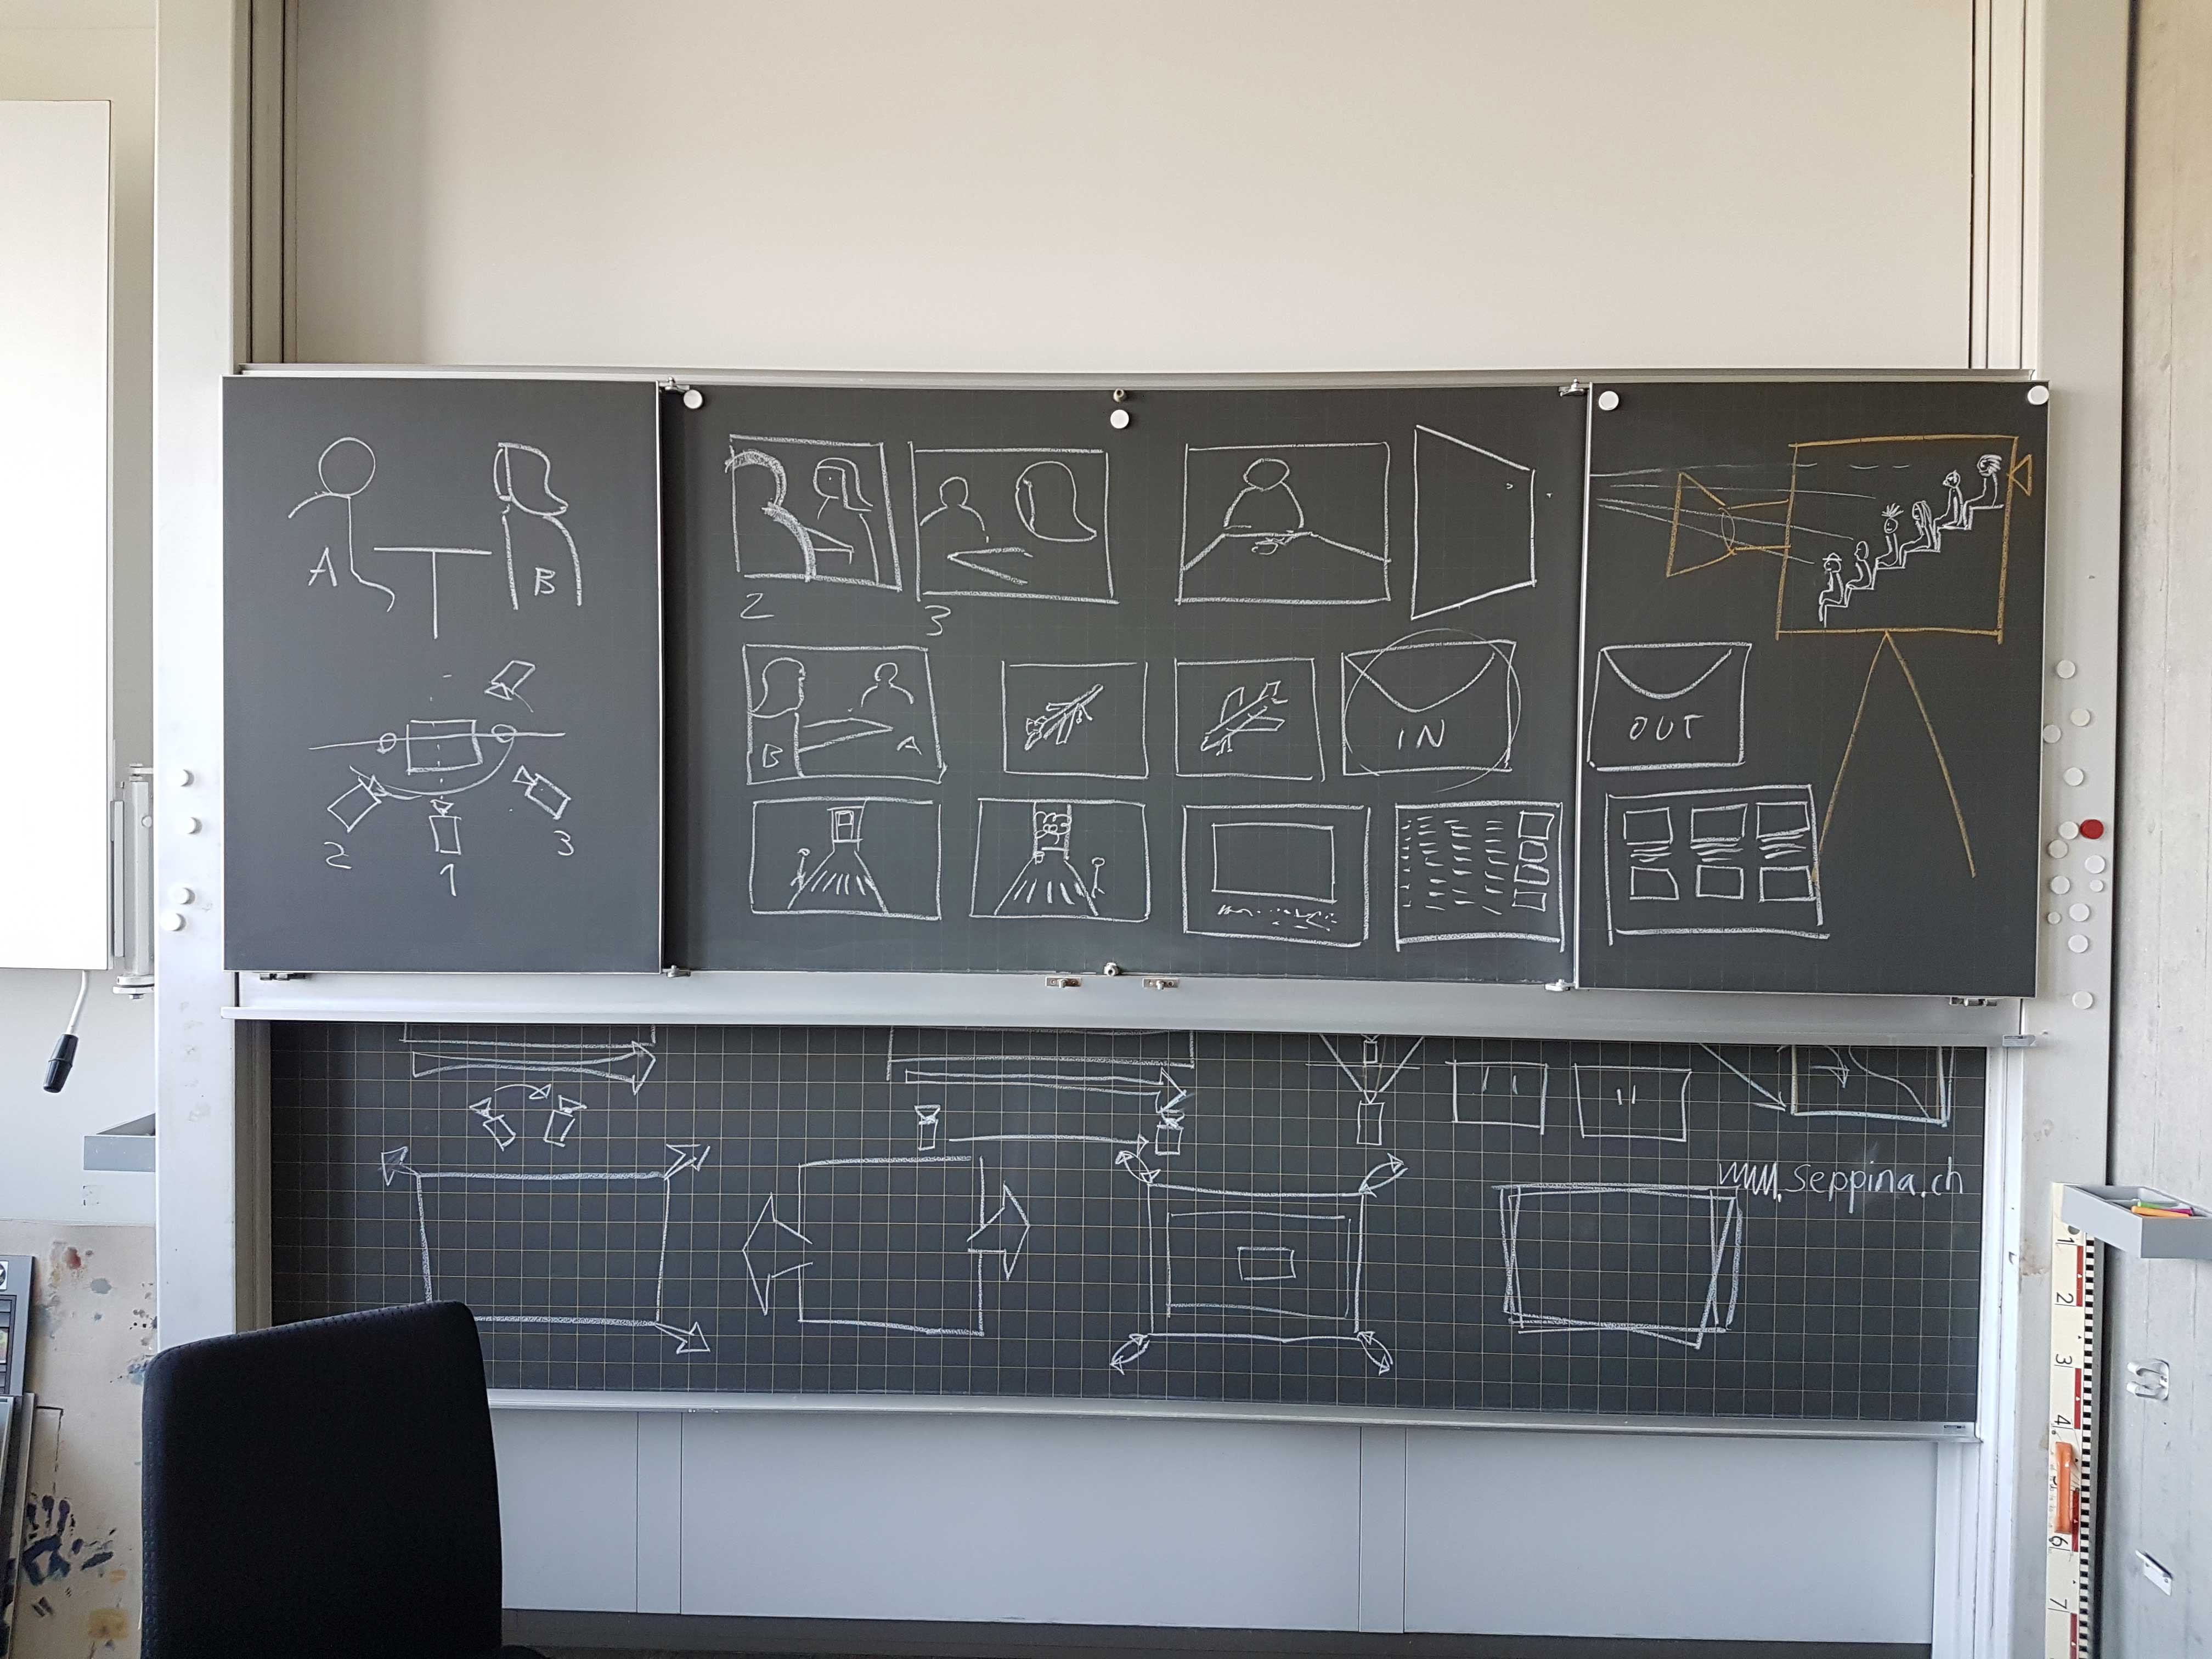 A
B
2
1
3
2
3
B
A
IN
OUT
www.seppina.ch
1
2
3
4
6
7